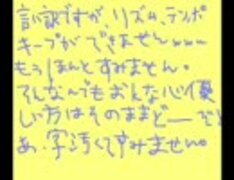 言い訳ですが、リズム、テンポ
キープができません
もうほんとすみません。
そんなんでもおんな心優
しい方はそのままどーぞ
あ、字汚くてすみません。